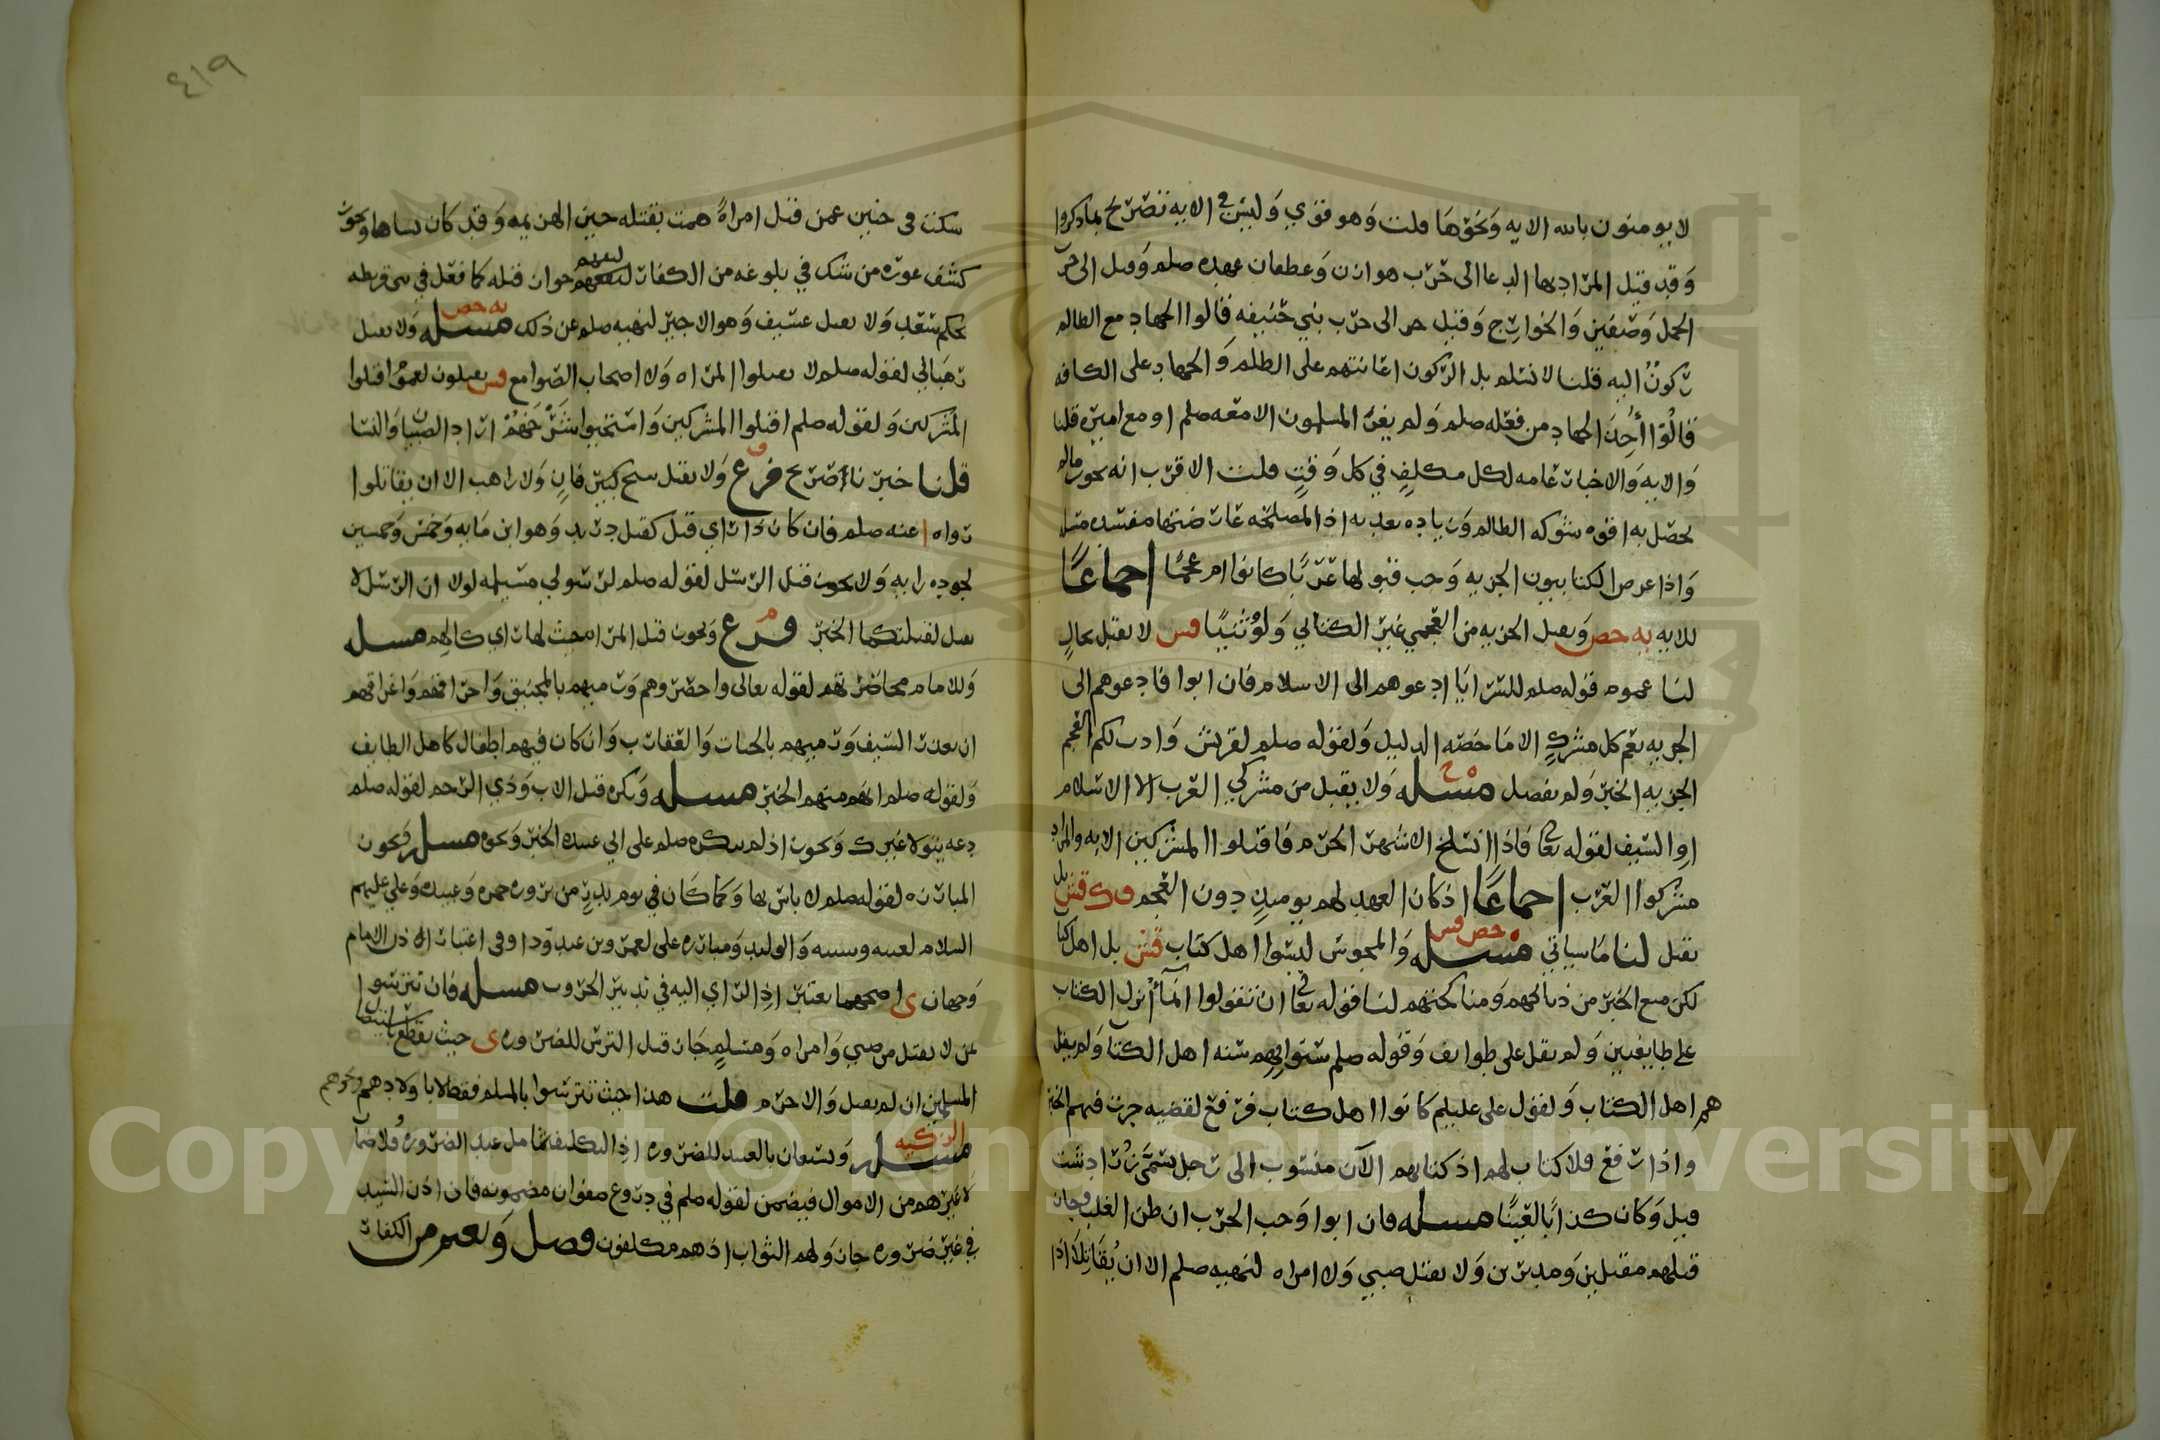 لا يومنون بالله الايه ونحوها قلت وهو قوي وليس في الايه تصريح بما ذكروا
وقد قيل المراد بها الدعا الى حرب هوازن وغطفان عهده صلم وقيل الى حرب
الجمل وصفين والخوارج وقيل الى حرب بني حنيفه قالوا الجهاد مع الظالم
ركون اليه قلنا لا نسلم بل الركون اعانتهم على الظلم والجهاد على الكافه
قالوا أخذ الجهاد من فعله صلم ولم يغز المسلمون الا معه صلم او مع اميره قلنا
والايه والاخبار عامه لكل مكلف في كل وقت قلت الاقرب انه يجوز ماله
يحصل به قوه شوكه الظالم وزياده تعديه اذ المصلحه عارضتها مفسده مثل
واذا عرض الكتابيون الجزيه وجب قبولها عربا كانوا ام عجما اجماعا
للايه يه حص وتقبل الجزيه من العجمي غير الكتابي ولو وثنيا فس لا تقبل بحال
لنا عموم قوله صلم للسرايا ادعوهم الى الاسلام فان ابوا فادعوهم الى
الجزيه يعم كل مشرك الا ما خصه الدليل ولقوله صلم لقريش وادت لكم العجم
الجزيه الخبر ولم يفصل مسله ولا يقبل من مشركي العرب الا الاسلام
او السيف لقوله تعا فاذا انسلخ الاشهر الحرم فاقتلوا المشركين الايه والمراد
مشركوا العرب اجماعا اذ كان العهد لهم يوميذ دون العجم ف ك قش بل
تقبل لنا ما سياتي مسله حص فس والمجوس ليسوا اهل كتاب قش بل اهل كتا
لكن منع الخبر من ذبائحهم ومناكحتهم لنا قوله تعا ان تقولوا انما أنزل الكتاب
على طايفتين ولم يقل على طوايف وقوله صلم سنوا بهم سنه اهل الكتا ولم يقل
هم اهل الكتاب ولقول علي عليلم كانوا اهل كتاب فرفع لقضيه جرت فيهم الخبر
واذا رفع فلا كتاب لهم اذ كتابهم الآن منسوب الى رجل يسمى زرادشت
قيل وكان كذابا لعينا مسله فان ابوا وجب الحرب ان ظن الغلب وجاز
قتلهم مقبلين ومدبرين ولا يقتل صبي ولا امراه لنهيه صلم الا ان يقاتلا اذا
٤١٩
سكت في حنين عمن قتل امراة همت بقتله حين الهزيمه وقد كان نساها ويجوز
كشف عوره من شك في بلوغه من الكفار ليتميز جواز قتله كما فعل في بني قريظه
بحكم سعد ولا يقتل عسيف وهو الاجير لنهيه صلم عن ذلك مسله يه حص ولا يقتل
رهباني لقوله صلم لا تقتلوا المراه ولا اصحاب الصوامع فس يقتلون لعموم اقتلوا
المشركين ولقوله صلم اقتلوا المشركين واستحيوا شرخهم اراد الصبيان والنسا
قلنا خبرنا أصرح فرع ولا يقتل شيخ كبير فان ولا راهب الا ان يقاتلوا
رواه عنه صلم فان كان ذا راي قتل كقتل دريد وهو ابن مايه وخمس وخمسين
لجوده رايه ولا يجوز قتل الرسل لقوله صلم لرسولي مسيلمه لولا ان الرسل لا
تقتل لقتلتكما الخبر فرع ويجوز قتل المراه حيث لها راي كالهم مسله
وللامام محاصرتهم لقوله تعالى واحصروهم ورميهم بالمجنيق واحراقهم واغراقهم
ان تعذر السيف ورميهم بالحيات والعقارب وان كان فيهم اطفال كاهل الطايف
ولقوله صلم هم منهم الخبر مسله ويكره قتل الاب وذي الرحم لقوله صلم
دعه يتولا غيرك ويجوز اذ لم ينكره صلم على ابي عبيده الخبر ونحوه مسله وتجوز
المبارزه لقوله صلم لا باس بها وكما كان في يوم بدر من بروز حمزه وعبيده وعلي عليهم
السلام لعتبه وشيبه والوليد ومبارزه علي لعمرو بن عبد ود وفي اعتبار اذن الامام
وجهان ي اصحهما يعتبر اذ الراي اليه في تدبير الحروب مسله فان تترسوا
بمن لا يقتل من صبي وامراه ومسلم جاز قتل الترس للضروره ي حيث يقطع باستيصال
المسلمين ان لم يقتل والا حرم قلت هذا حيث تترسوا بالمسلم فقط لا باولادهم ونحوهم
مسله الزكيه ويستعان بالعبيد للضروره اذ التكليف شامل عند الضروره ولا ضمان
لا غيرهم من الاموال فيضمن لقوله صلم في دروع صفوان مضمونه فان اذن السيد
في غير ضروره جاز ولهم الثواب اذ هم مكلفون فصل ويغنم من الكفار
Copyright © King Saud University